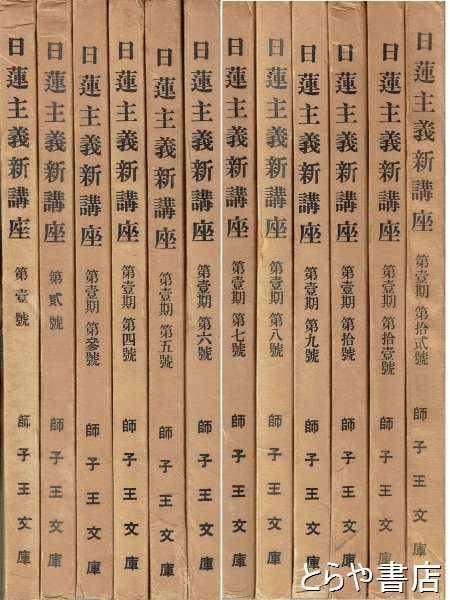 日蓮主義新講座 第壹號 師子王文庫
日蓮主義新講座 第貳號 師子王文庫
日蓮主義新講座 第壹期 第參號 師子王文庫
日蓮主義新講座 第壹期 第四號 師子王文庫
日蓮主義新講座 第壹期 第五號 師子王文庫
日蓮主義新講座 第壹期 第六號 師子王文庫
日蓮主義新講座 第壹期 第七號 師子王文庫
日蓮主義新講座 第壹期 第八號 師子王文庫
日蓮主義新講座 第壹期 第九號 師子王文庫
日蓮主義新講座 第壹期 第拾號 師子王文庫
日蓮主義新講座 第壹期 第拾壹號 師子王文庫
日蓮主義新講座 第壹期 第拾貳號 師子王文庫
とらや書店